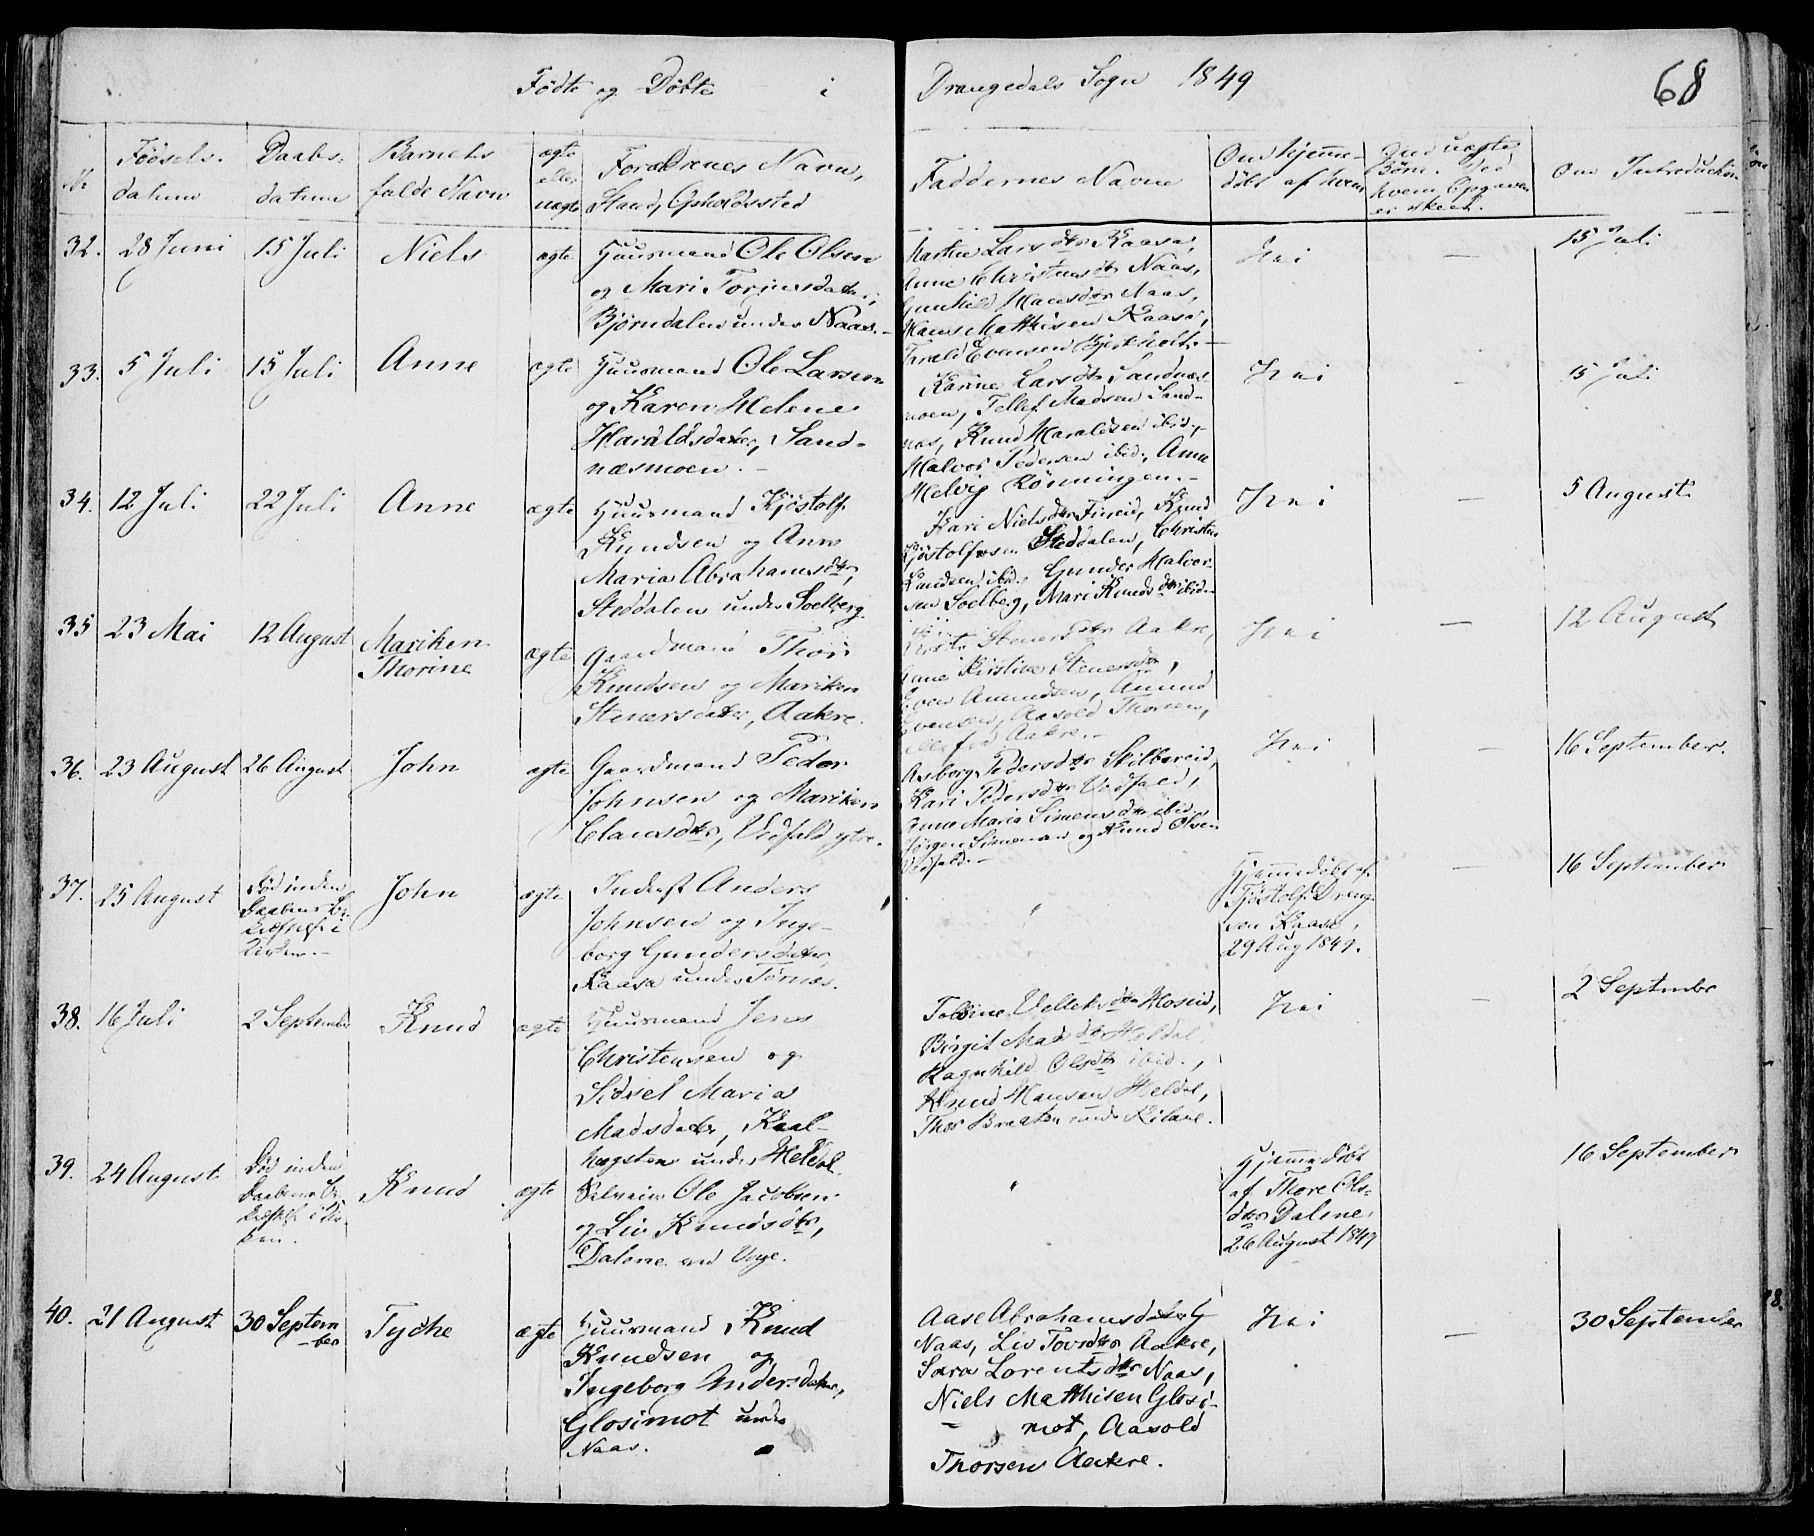 Fødte og Døbte i Drangedals Sogn 1849
68
Nr
Fødsels-
datum
Daabs-
datum
Barnets
fulde Navn
ægte
eller
uægte
Forældrenes Navn,
Stand, Opholdssted
Faddernes Navne
Om hjemme-
døbt af hvem
Om uægte
Børn. Ved
hvem Opgaven
er skeet.
Om Introduction
32. 28 Juni 15 Juli Niels ægte
Huusmand Ole Olsen
og Mari Torjusdatter,
Bjørndalen under Naas.-
Marthe Larsdtr Kaasa,
Anne Christensdtr Naas,
Gunhild Hansdtr Naas,
Hans Matthisen Kaasa,
Evensen Bjerkholt.-
Nei
—
15 Juli
33. 5 Juli 15 Juli Anne ægte
Huusmand Ole Larsen
og Karen Helene
Haraldsdatter, Sand-
næsmoen.-
Karine Larsdtr Sandnæs-
moen, Tellef Madsen Sand-
næs, Knud Haraldsen ibid.,
Halvor Pedersen ibid., Anne
Helvig Rønningen.-
Nei
-
15 Juli
34. 12 Juli 22 Juli Anne ægte
Huusmand Kjøstolf
Knudsen og Anne
Maria Abrahamsdtr,
Steddalen under Soelberg.
Kari Nielsdtr Fineid, Knud
Kjøstolfsen Steddalen, Christen
Knudsen ibid., Gunder Halvor-
sen Soelberg, Mari Knudsdtr ibid.-
Nei
-
5 August
35 23 Mai 12 August Mariken
Thorine
ægte
Gaardmand Thor
Knudsen og Mariken
Stenersdatter, Aakre.
Stenersdtr Aakre,
Kirstine Stenersdtr,
Even Amundsen, Amund
Evensen, Aasold Thorsen,
alle fra Aakre.-
Nei
—
12 August
36. 23 August 26 August John ægte
Gaardmand Peder
Johnsen og Mariken
Clausdtr, Vedfald ytre.
Asborg Pedersdtr Skilbereid,
Kari Pedersdtr Vedfald,
Anne Maria Simensdtr ibid.,
Jørgen Simonsen og Knud Olsen
Vedfald.-
Nei
-
16 September.
37. 25 August Død inden
Daabens Be-
kræftelse i
Kirken.-
John ægte
Inderst Anders
Johnsen og Inge-
borg Gundersdatter,
Kaasa under Tørnes.
"
Hjemmedøbt af
Tjøstolf Dreng-
sen Kaasa,
29 Aug 1849.
-
16 September
38. 16 Juli 2 September Knud ægte
Huusmand Jens
Christensen og
Sidsel Maria
Madsdatter, Kaal-
hagsten under Heldal.
Tolline Vellektsdtr Hoseid,
Birgit Madsdtr Heldal
Ragnhild Olsdtr ibid.,
Knud Hansen Heldal,
Thor Braaten under Kilane.
Nei
-
2 September
39. 24 August Død inden
Daabens Be-
kræftelse i Kir-
ken.
Knud ægte
Selveier Ole Jacobsen
og Liv Knudsdtr,
Dalene ved Vege.
"
Hjemmedøbt
af Thore Ols-
dtr Dalene,
26 August 1849
16 September
40. 21 August 30 Septem-
ber
Tyche ægte
Huusmand Knud
Knudsen og
Ingeborg Andersdatter,
Glosimot under
Naas.
Aase Abrahamsdatter
Naas, Liv Tovsdtr Aakre,
Sara Lorentsdtr Naas,
Niels Matthisen Glosi-
mot, Aasold
Thorsen Aakre.
Nei
—
30 September